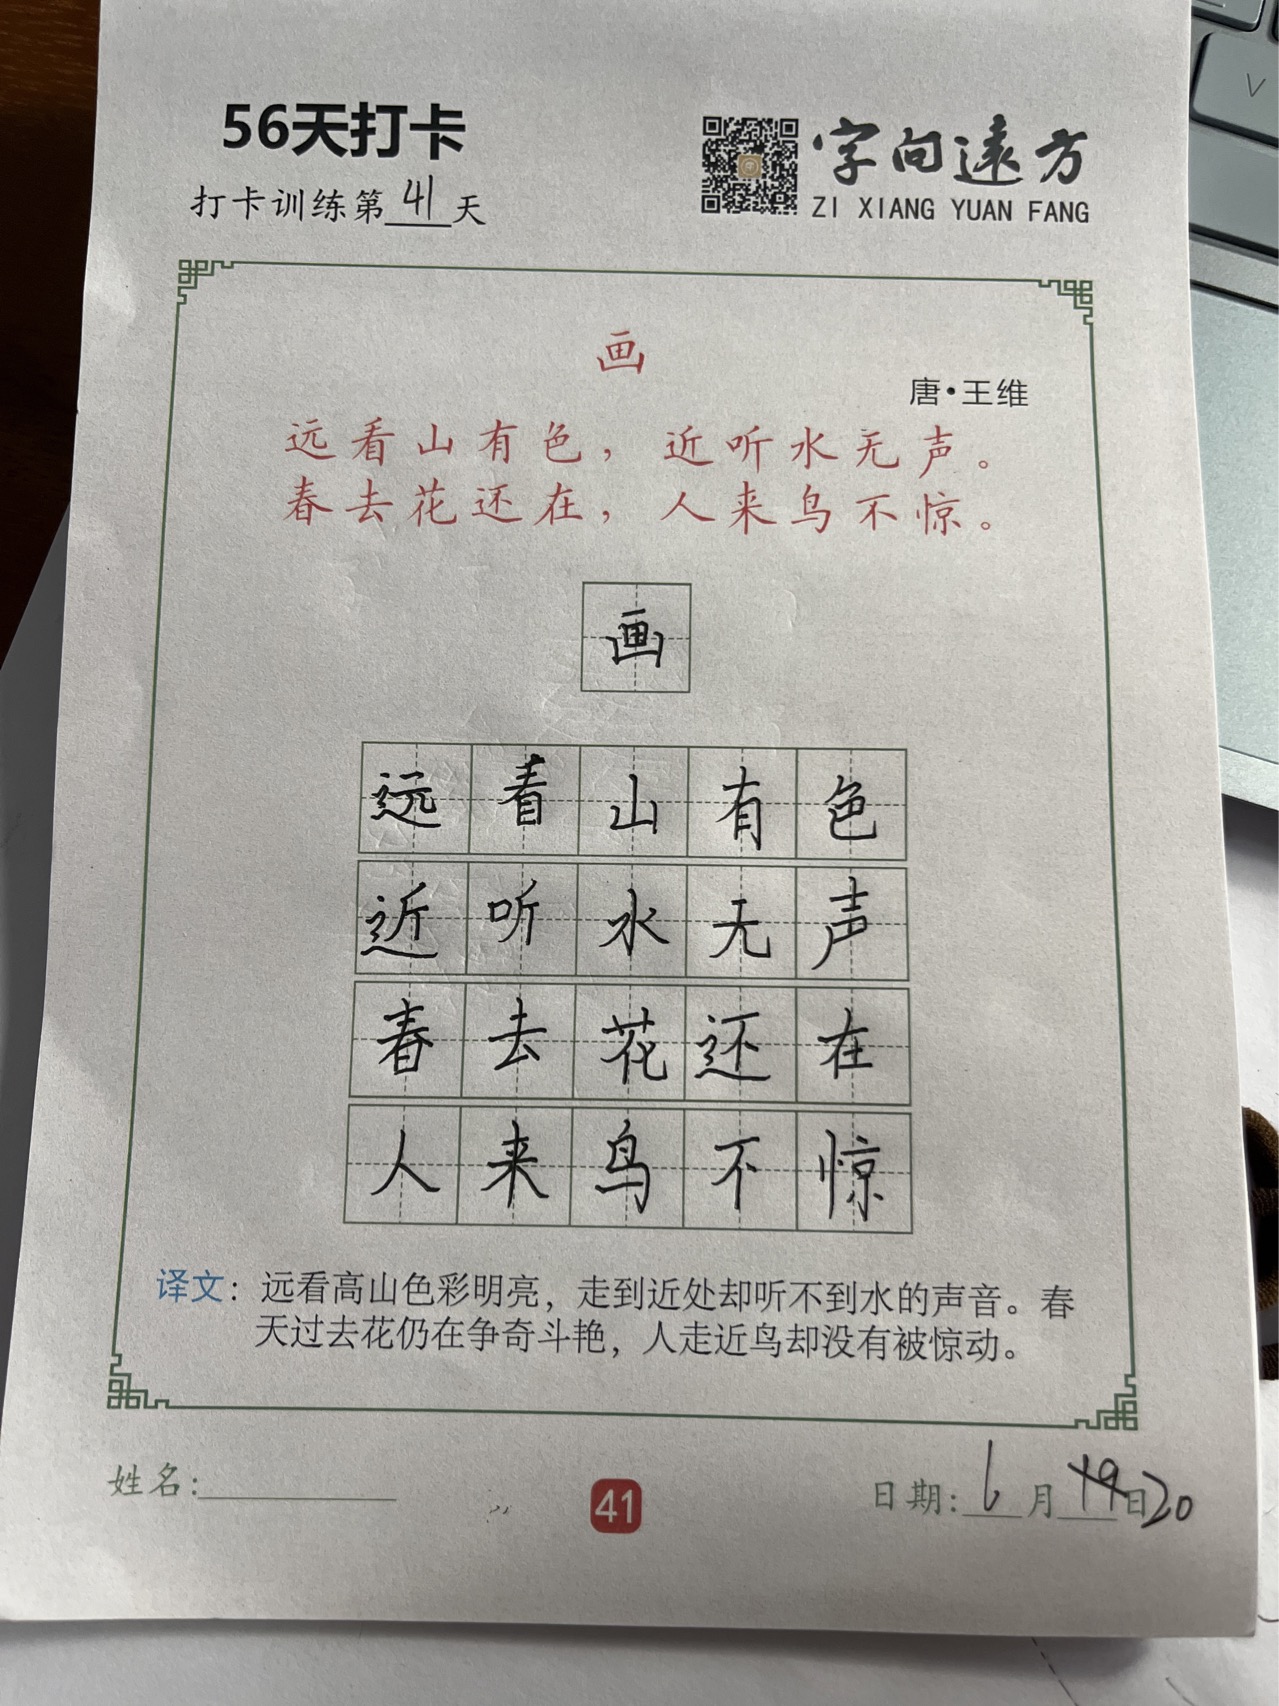 56天打卡
打卡训练第41天
字向远方
ZI XIANG YUAN FANG
画
唐·王维
远看山有色，近听水无声。
春去花还在，人来鸟不惊。
画
远看山有色
近听水无声
春去花还在
人来鸟不惊
译文：远看高山色彩明亮，走到近处却听不到水的声音。春
天过去花仍在争奇斗艳，人走近鸟却没有被惊动。
姓名：
41
日期：6月19日20